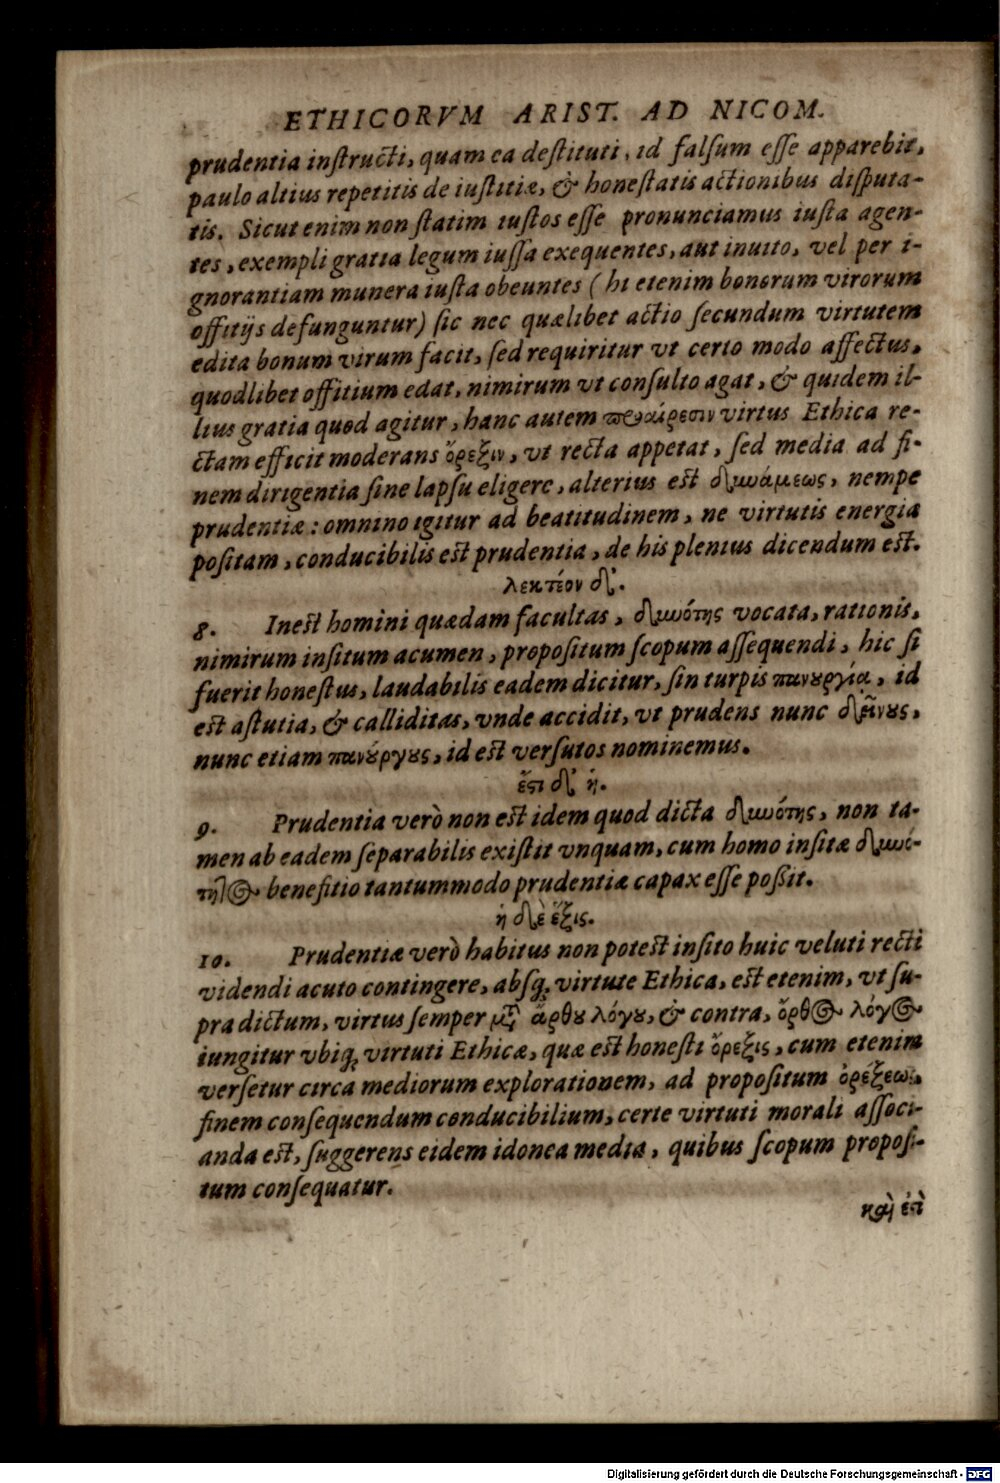 ETHICORVM ARIST. AD NICOM.
prudentia inſtructi, quam ea deſtituti, id falſum eſſe apparebit,
paulo altius repetitis de iuſtitiæ, & honeſtatis actionibus diſputa-
tis. Sicut enim non ſtatim iuſtos eſſe pronunciamus iuſta agen-
tes, exempli gratia legum iuſſa exequentes, aut inuito, vel per i-
gnorantiam munera iuſta obeuntes (hi etenim bonorum virorum
offitijs defunguntur) ſic nec quælibet actio ſecundum virtutem
edita bonum virum facit, ſed requiritur vt certo modo affectus,
quodlibet offitium edat, nimirum vt conſulto agat, & quidem il-
lius gratia quod agitur, hanc autem προαίρεσιν virtus Ethica re-
ctam efficit moderans ὄρεξιν, vt recta appetat, ſed media ad fi-
nem dirigentia ſine lapſu eligere, alterius eſt δυνάμεως, nempe
prudentiæ: omnino igitur ad beatitudinem, ne virtutis energia
poſitam, conducibilis eſt prudentia, de his plenius dicendum eſt.
λεκτέον δ'.
8. Ineſt homini quædam facultas, δεινότης vocata, rationis,
nimirum inſitum acumen, propoſitum ſcopum aſſequendi, hic ſi
fuerit honeſtus, laudabilis eadem dicitur, ſin turpis πανουργία, id
eſt aſtutia, & calliditas, vnde accidit, vt prudens nunc δεῖνους,
nunc etiam πανούργους, id eſt verſutos nominemus.
ἔστι δ' ἡ.
9. Prudentia verò non eſt idem quod dicta δεινότης, non ta-
men ab eadem ſeparabilis exiſtit vnquam, cum homo inſitæ δεινό-
τητος benefitio tantummodo prudentiæ capax eſſe poßit.
ἡ δὲ ἕξις.
10. Prudentiæ verò habitus non poteſt inſito huic veluti recti
videndi acuto contingere, abſq; virtute Ethica, eſt etenim, vt ſu-
pra dictum, virtus ſemper μετ' ἄρθου λόγου, & contra, ὄρθος λόγος
iungitur vbiq; virtuti Ethicæ, quæ eſt honeſti ὄρεξις, cum etenim
verſetur circa mediorum explorationem, ad propoſitum ὀρέξεως,
finem conſequendum conducibilium, certe virtuti morali aſſoci-
anda eſt, ſuggerens eidem idonea media, quibus ſcopum propoſi-
tum conſequatur.
καὶ ἐπὶ
Digitalisierung gefördert durch die Deutsche Forschungsgemeinschaft - DFG